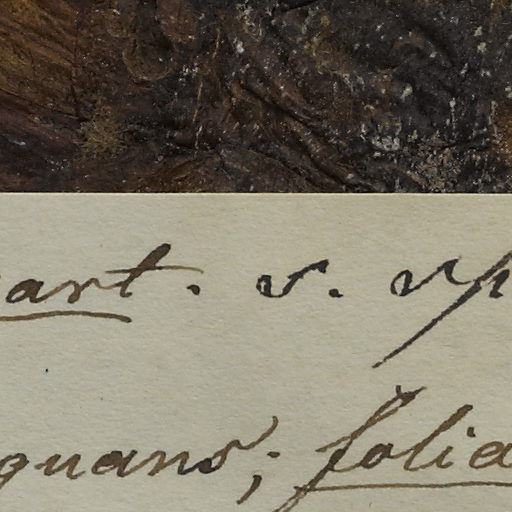 art. s. sp
quans; folia